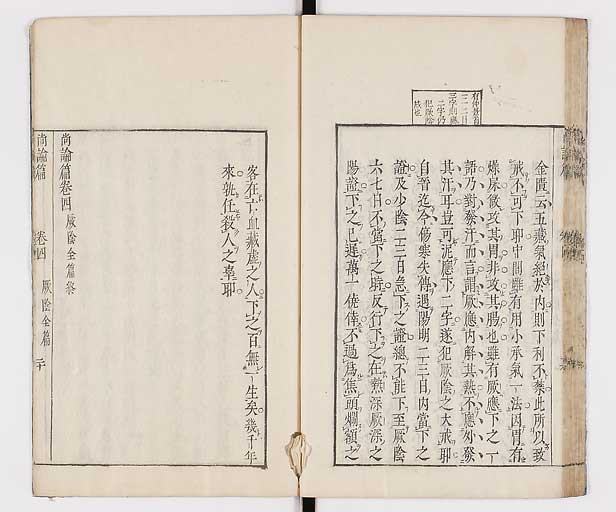 金匱云五藏氣絕於內則下利不禁此所以致
戒不可下耶中間雖有用小承氣一法因胃有
燥屎微攻其胃非攻其腸也雖有厥應下之一
語乃對發汗而言謂厥應內解其熱不應外發
其汗耳豈可泥應下二字遂犯厥陰之大戒耶
自晉迄今傷寒失傳遇陽明二三日內當下之
證及少陰二三日急下之證總不能下至厥陰
六七日不當下之時反行下之在熱深厥深之
陽證下之已遲萬一僥倖不過為焦頭爛額之
客在亡血藏虛之人下之百無一生矣幾千年
來孰任殺人之辜耶
尚論篇卷四厥陰全篇終
尚論篇 卷四 厥陰全篇 二十